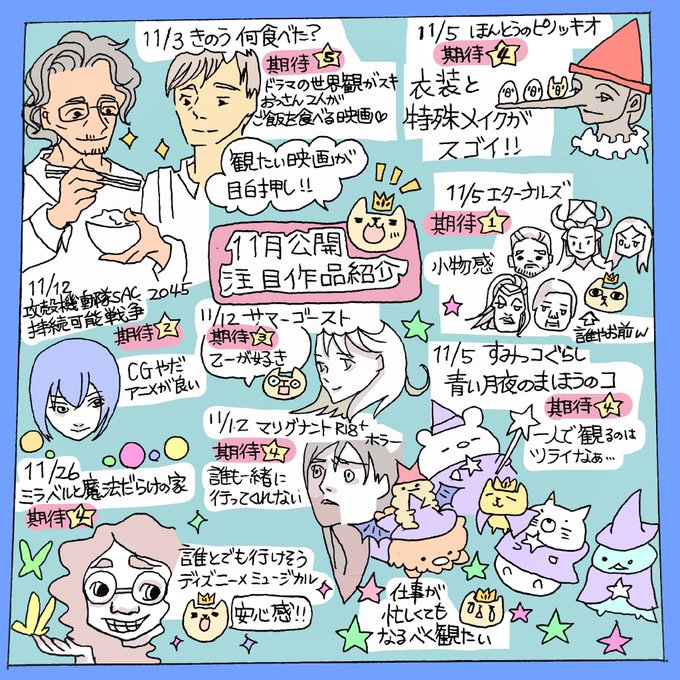 11/3 きのう何食べた?
期待 5
ドラマの世界観がスキ
おっさん2人が
ご飯を食べる映画♡
11/5 ほんとうのピノッキオ
期待 4
衣装と
特殊メイクが
スゴイ!!
観たい映画が
目白押し!!
11月公開
注目作品紹介
11/5 エターナルズ
期待 1
小物感
誰やお前w
11/12
攻殻機動隊SAC_2045
持続可能戦争
期待 2
CGやだ
アニメが良い
11/12 サマーゴースト
期待 3
乙一が好き
11/5 すみっコぐらし
青い月夜のまほうのコ
期待 4
一人で観るのは
ツライなぁ…
11/12 マリグナント R18+
ホラー
期待 4
誰も一緒に
行ってくれない
11/26
ミラベルと魔法だらけの家
期待 4
誰とでも行けそう
ディズニー×ミュージカル
安心感!!
仕事が
忙しくても
なるべく観たい